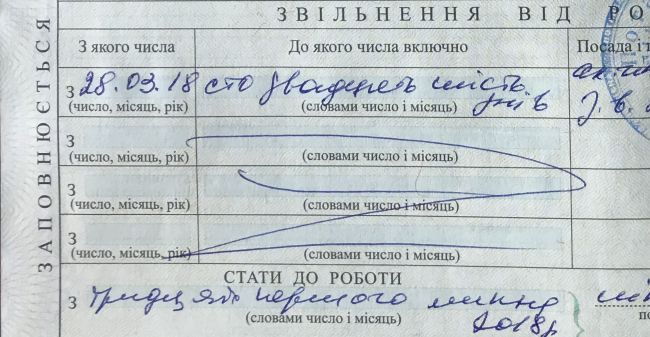 ЗВІЛЬНЕННЯ ВІД РО
ЗАПОВНЮЄТЬСЯ
З якого числа До якого числа включно Посада і
З 28.03.18 сто двадцять шість
днів
(число, місяць, рік) (словами число і місяць)
З
(число, місяць, рік) (словами число і місяць)
З
(число, місяць, рік) (словами число і місяць)
З
(число, місяць, рік) (словами число і місяць)
СТАТИ ДО РОБОТИ
З тридцять першого липня
2018р
(словами число і місяць)